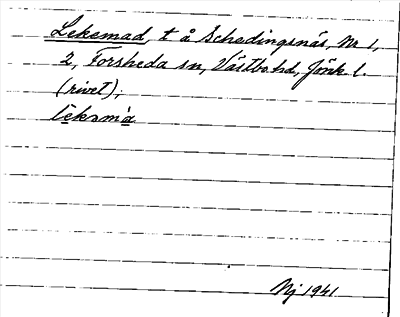 Lekemad, t å Schedingsnäs, Nr 1,
2, Forsheda sn, Västbo hd, Jönk l.
(rivet);
lèkəmà
Nj 1941